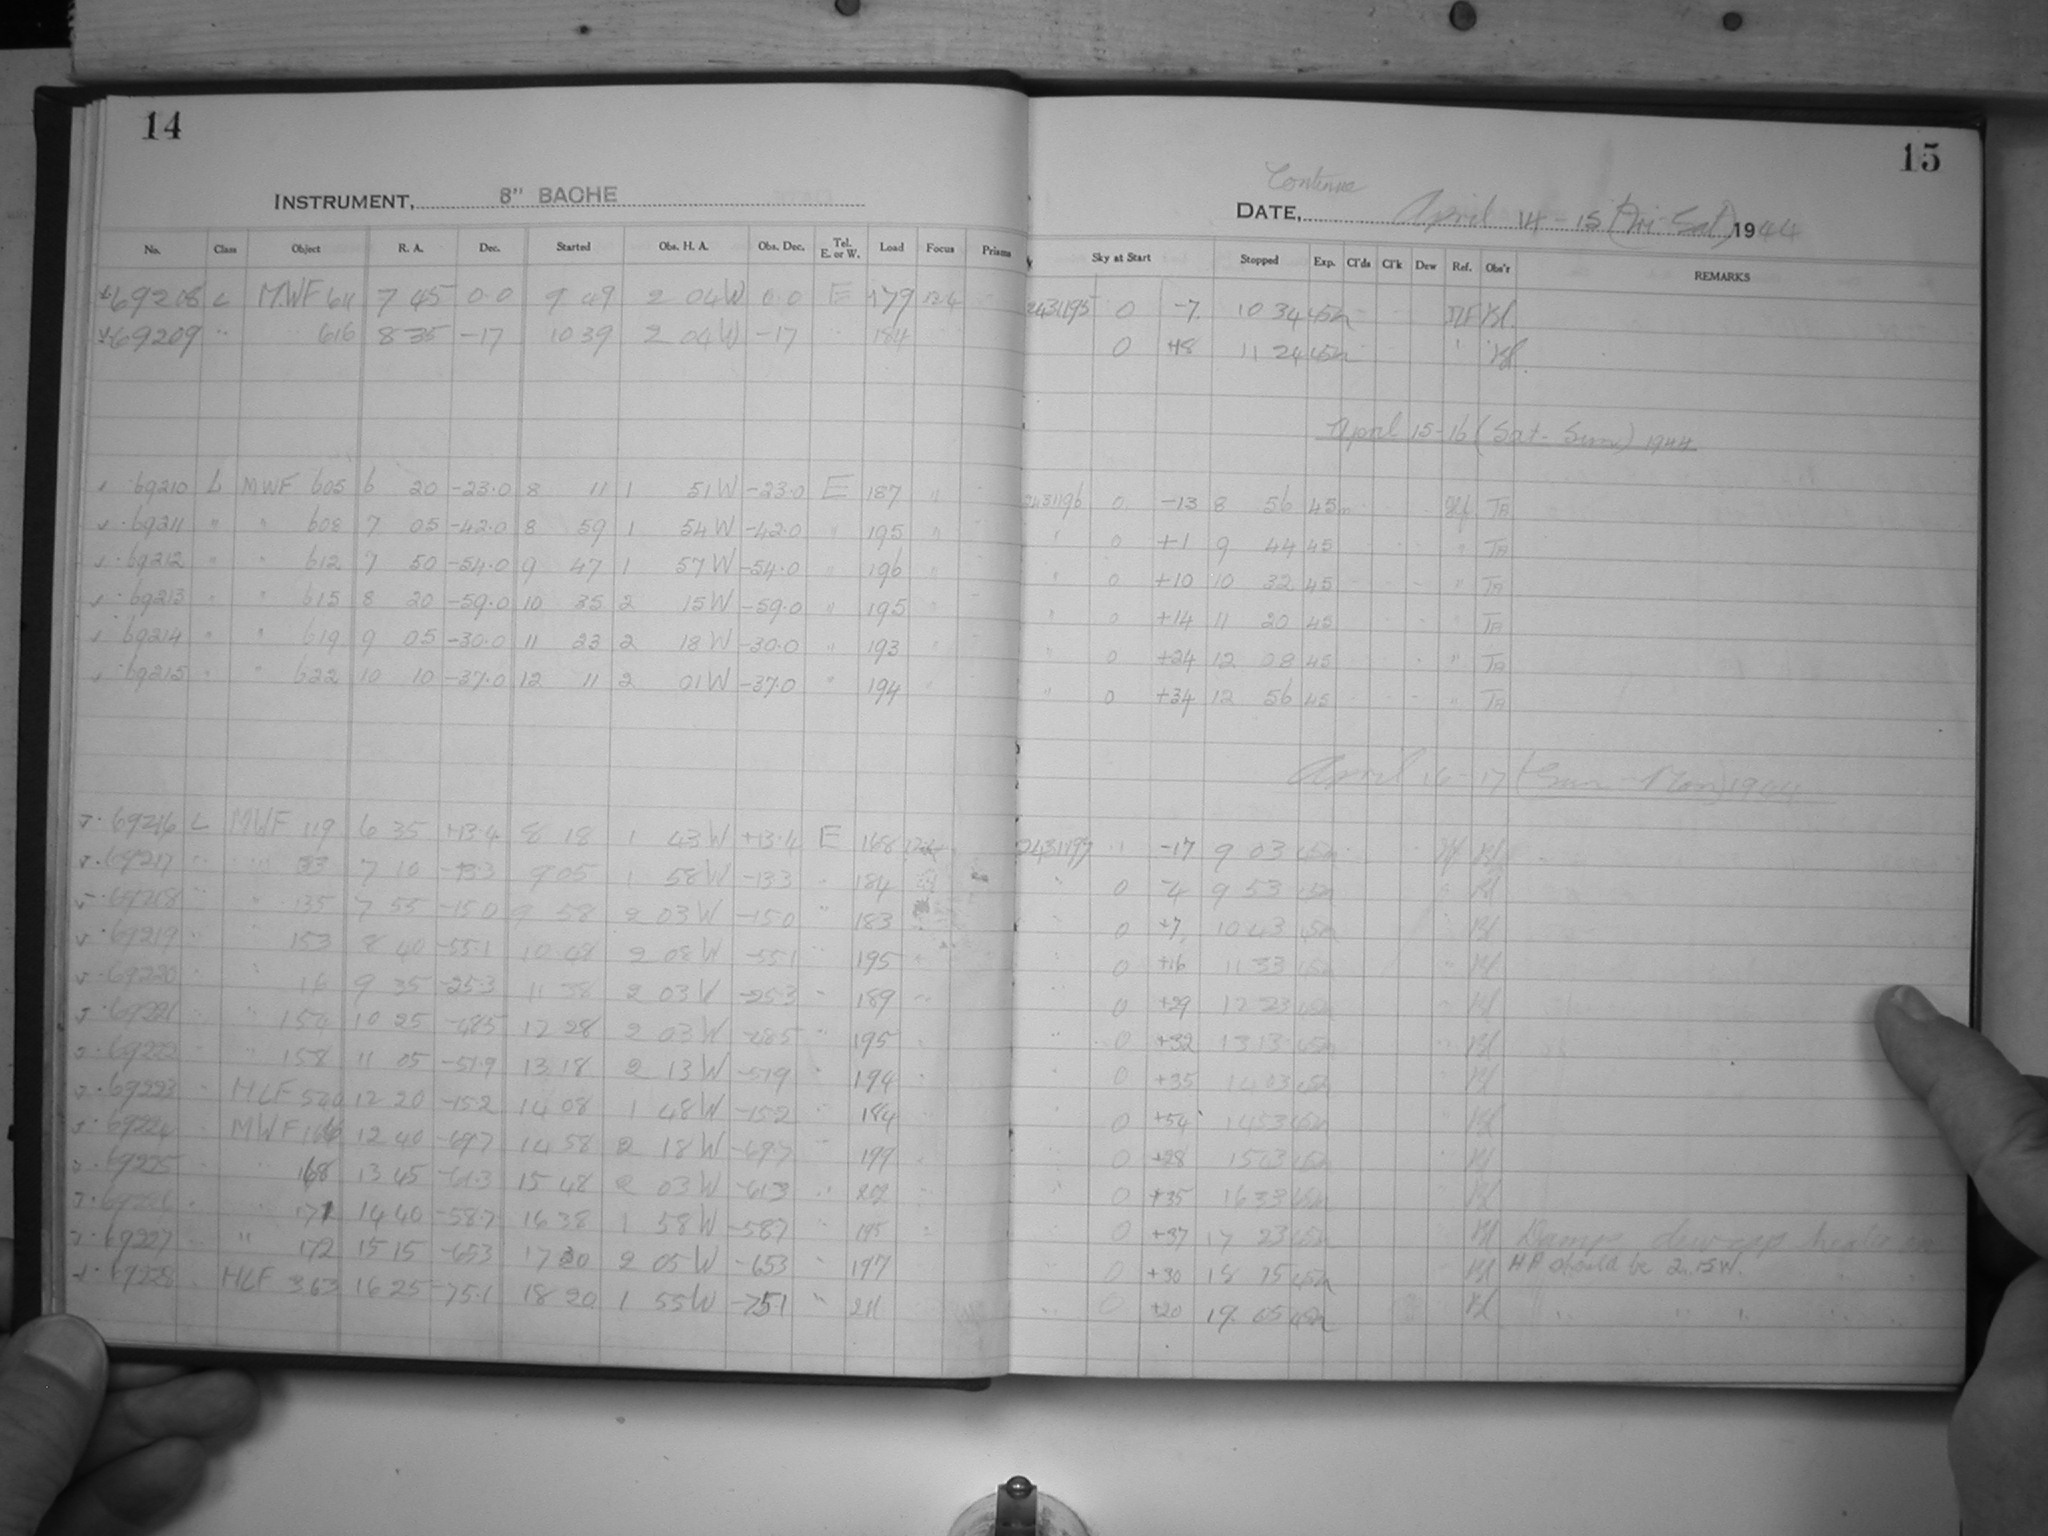 14
INSTRUMENT, 8" BACHE
No. Class Object R. A. Dec. Started Obs. H. A. Obs. Dec. Tel. E. or W. Load Focus Prisms
69208 L MWF 611 7 45 0.0 9 49 2 04W 0.0 E 179 12.4
69209 " 616 8 35 -17 10 39 2 04W -17 184
69210 L MWF 605 6 20 -23.0 8 11 1 51W -23.0 E 187 "
69211 " " 608 7 05 -42.0 8 59 1 54W -42.0 " 195 "
69212 " " 612 7 50 -54.0 9 47 1 57W -54.0 " 196 "
69213 " " 615 8 20 -59.0 10 35 2 15W -59.0 " 195 "
69214 " " 619 9 05 -30.0 11 23 2 18W -30.0 " 193 "
69215 " " 622 10 10 -37.0 12 11 2 01W -37.0 " 194 "
69216 L MWF 119 6 35 +13.4 8 18 1 43W +13.4 E 168
69217 " 133 7 10 -13.3 9 05 1 58W -13.3 " 184
69218 " 135 7 55 -15.0 9 58 2 03W -15.0 " 183
69219 " 153 8 40 -55.1 10 48 2 08W -55.1 " 195
69220 " 9 35 -25.3 11 38 2 03W -25.3 " 189
69221 " 10 25 -48.5 12 28 2 03W -48.5 " 195
69222 " 158 11 05 -57.9 13 18 2 13W -57.9 " 194
69223 HLF 12 20 -15.2 14 08 1 48W -15.2 " 184
69224 MWF 166 12 40 -69.7 14 58 2 18W -69.7 " 199
69225 " 168 13 45 -61.3 15 48 2 03W -61.3 " 202
69226 " 171 14 40 -58.7 16 38 1 58W -58.7 " 195
69227 " 172 15 15 -65.3 17 30 2 05W -65.3 " 197
69228 HLF 363 16 25 -75.1 18 20 1 55W -75.1 " 211
15
Continue
DATE, April 14-15 (Fri-Sat) 1944
Sky at Start Stopped Exp. Cl'ds Cl'k Dew Ref. Obs'r REMARKS
2431195 0 -7 10 34 45m
0 +8 11 24 45m
April 15-16 (Sat-Sun) 1944
2431196 0 -13 8 56 45m
" 0 +1 9 44 45
" 0 +10 10 32 45
" 0 +14 11 20 45
" 0 +24 12 08 45
" 0 +34 12 56 45
April 16-17 (Sun-Mon) 1944
2431197 " -17 9 03 45m
" 0 -4 9 53 45m
" 0 +7 10 43 45m
" 0 +16 11 33 45m
" 0 +29 12 23 45m
" 0 +32 13 13 45m
0 +35 14 03 45m
0 +54 14 53 45m
0 +28 15 43 45m
0 +35 16 33 45m
0 +37 17 23 45m Damp dewcap heater on
0 +30 18 15 45m HA should be 2.15W.
0 +20 19 05 45m " " " "